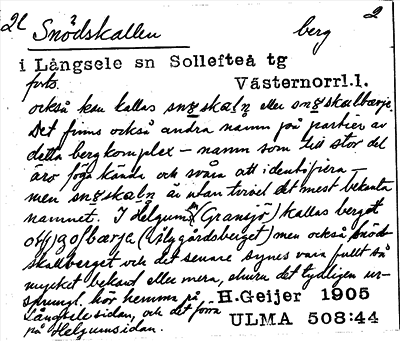 2l Snödskallen berg 2
i Långsele sn Sollefteå tg
forts. Västernorrl.l.
också kan kallas snøskaln eller snøskalbærje.
Det finns också andra namn på partier av
detta bergkomplex – namn som till stor del
äro föga kända och svåra att identifiera –
men snøskaln är utan tvivel det mest bekanta
namnet. I Helgum (Gransjö) kallas berget
också (Älvgårdsberget) men också Snöd-
skallberget och det senare synes vara fullt så
mycket bekant eller mera, ehuru det tydligen ur-
sprungl. hör hemma på H.Geijer 1905
Långselesidan, och det förra
på Helgumsidan. ULMA 508:44